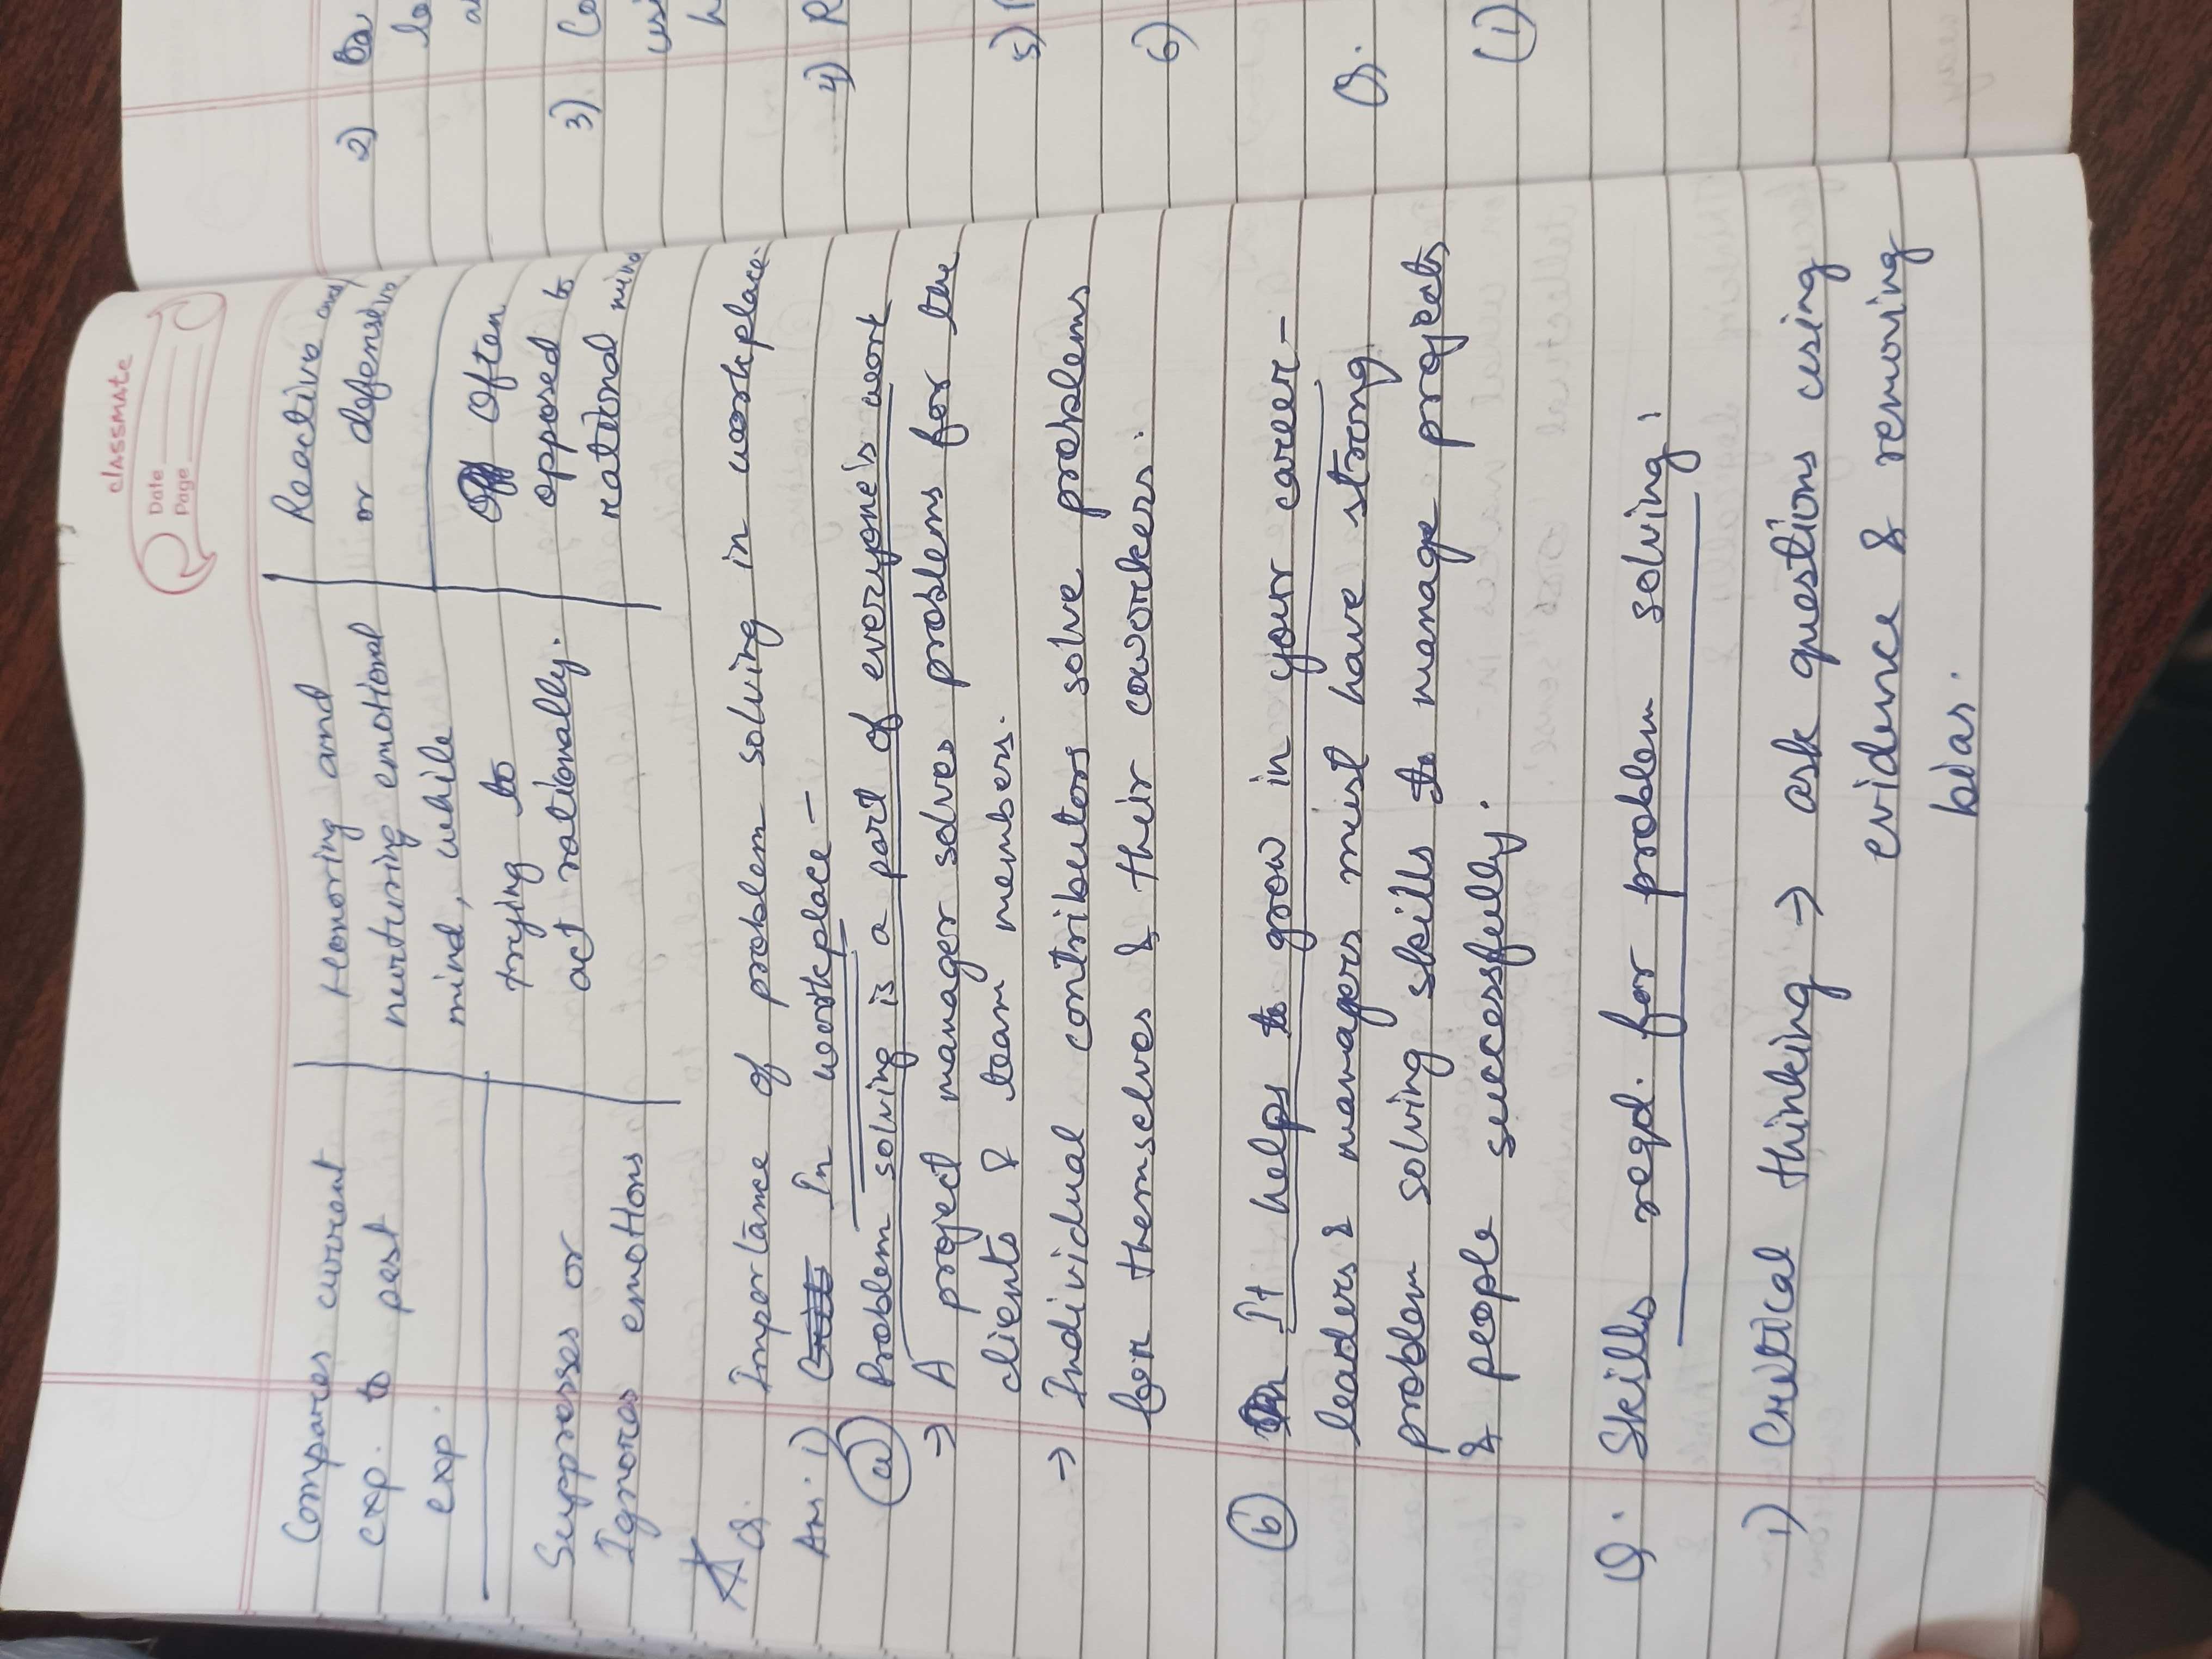 classmate
Date
Page
Compares current
exp. to past
exp.
Honoring and
nurturing emotional
mind, while
trying to
act rationally.
Reactive and
or defensive
Often
opposed to
rational mind
Suppresses or
Ignores emotions
Q. Importance of problem solving in workplace.
Ans. i) In workplace -
(a) Problem solving is a part of everyone's work
→ A project manager solves problems for the
clients & team members.
→ Individual contributors solve problems
for themselves & their coworkers.
(b) It helps to grow in your career -
leaders & managers must have strong
problem solving skills to manage projects
& people successfully.
Q. Skills reqd. for problem solving:
1) Critical thinking → ask questions using
evidence & removing
bias.
2)
3)
4) R
5)
6)
Q.
(i)